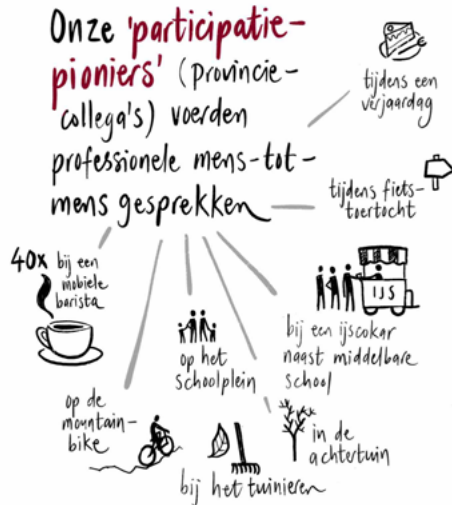 Onze 'participatie-
pioniers' (provincie-
collega's) voerden
professionele mens-tot-
mens gesprekken
tijdens een
verjaardag
tijdens fiets-
toertocht
40x bij een
mobiele
barista
IJS
bij een ijscokar
naast middelbare
school
op het
schoolplein
op de
mountain-
bike
in de
achtertuin
bij het tuinieren